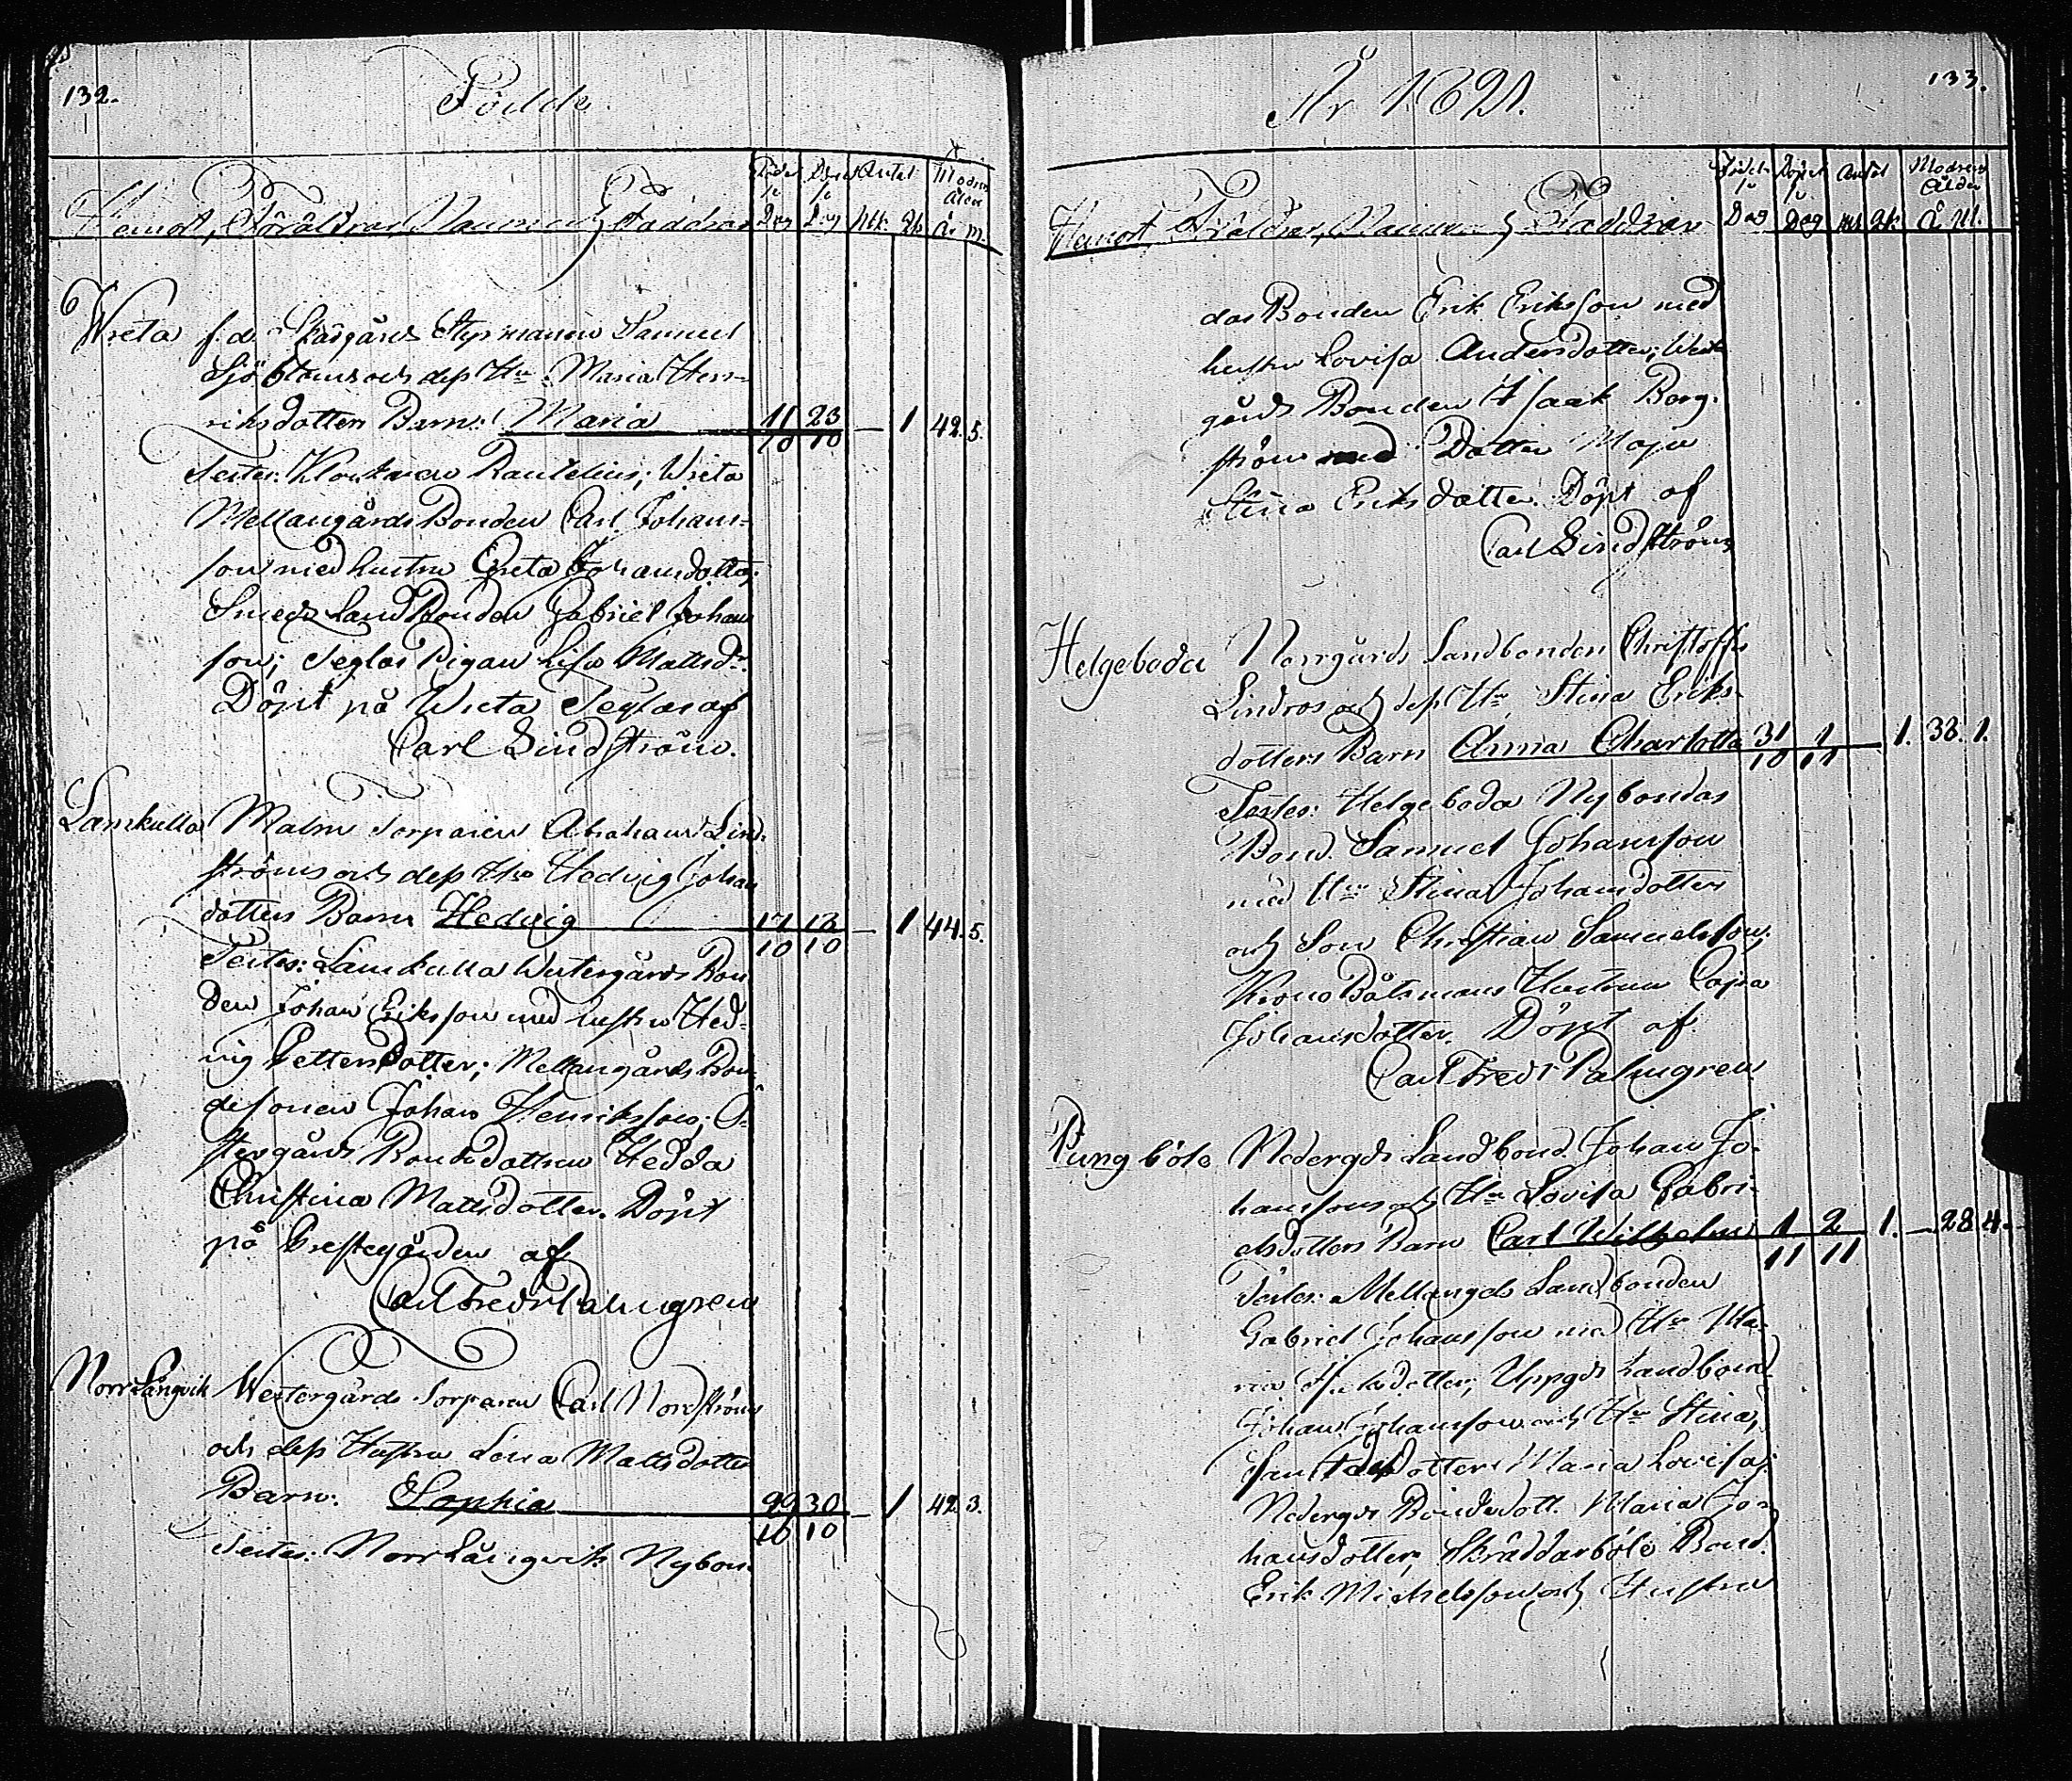 132.
Födde
Hemort, Föräldrar, Namn och Faddrar
Född /: Dag
Döpt /: Dag
Antal Mk. Qk.
Modrens Ålder År m.
Wreta f.d. Skärgårds Styrmannen Samuel
Sjöbloms och dess Hu. Maria Hen-
riksdotters Barn: Maria 11/10 23/10 — 1 42. 5.
Testes: Klockaren Rautelius; Wreta
Mellangårds Bonden Carl Johans-
son med hustru Greta Johansdotter;
Smeds Landbonden Gabriel Johans
son; Seglas Pigan Lisa Mattsdr.
Döpt på Wreta Seglas af
Carl Lindström.
Lamkulla Malm Torparen Abraham Lind-
ströms och dess Hu Hedvig Johans
dotters Barn Hedvig 17/10 18/10 — 1 44. 5.
Testes: Lamkulla Westergårds Bon
den Johan Eriksson med hustru Hed-
vig Pettersdotter; Mellangårds Bon-
desonen Johan Henriksson; Ö-
stergårds Bondedottren Hedda
Christina Mattsdotter. Döpt
på Prestegården af
Carl Fredr Palmgren
Norrlångvik Westergårds Torparen Carl Nordströms
och dess Hustru Lena Mattsdotters
Barn: Sophia 29/10 30/10 — 1 42. 3.
Testes: Norrlångviks Nybon-
År 1821.
133.
Hemort, Föräldrar, Namn och Faddrar
Född /: Dag
Döpt /: Dag
Antal mk. Qk.
Modrens Ålder Å. M.
das Bonden Erik Eriksson med
hustru Lovisa Andersdotter; West
gårds Bonden Isaak Berg-
ström med Dotter Maja
Stina Eriksdotter. Döpt af
Carl Lindström
Helgeboda Norrgårds Landbonden Christoffer
Lindros och dess Hu Stina Eriks-
dotters Barn Anna Charlotta 31/10 1/11 — 1. 38. 1.
Testes: Helgeboda Nybondas
Bond. Samuel Johansson
med Hu Stina Johansdotter
och Son Christian Samuelsson;
Krono Båtsmans Hustrun Cajsa
Johansdotter. Döpt af
Carl Fredr Palmgren
Pungböle Nedergds Landbond. Johan Jo-
hanssons och Hu Lovisa Gabri-
elsdotters Barn Carl Wilhelm 1/11 2/11 1. — 28. 4.
Testes: Mellangds Landbonden
Gabriel Johansson med Hu Ma-
ria Eriksdotter; Uppgds Landbond.
Johan Johansson och Hu Stina,
samt dess Dotter Maria Lovisa;
Nedergds Bondedott. Maria Jo-
hansdotter; Skräddarböle Bond.
Erik Michelsson och Hustru